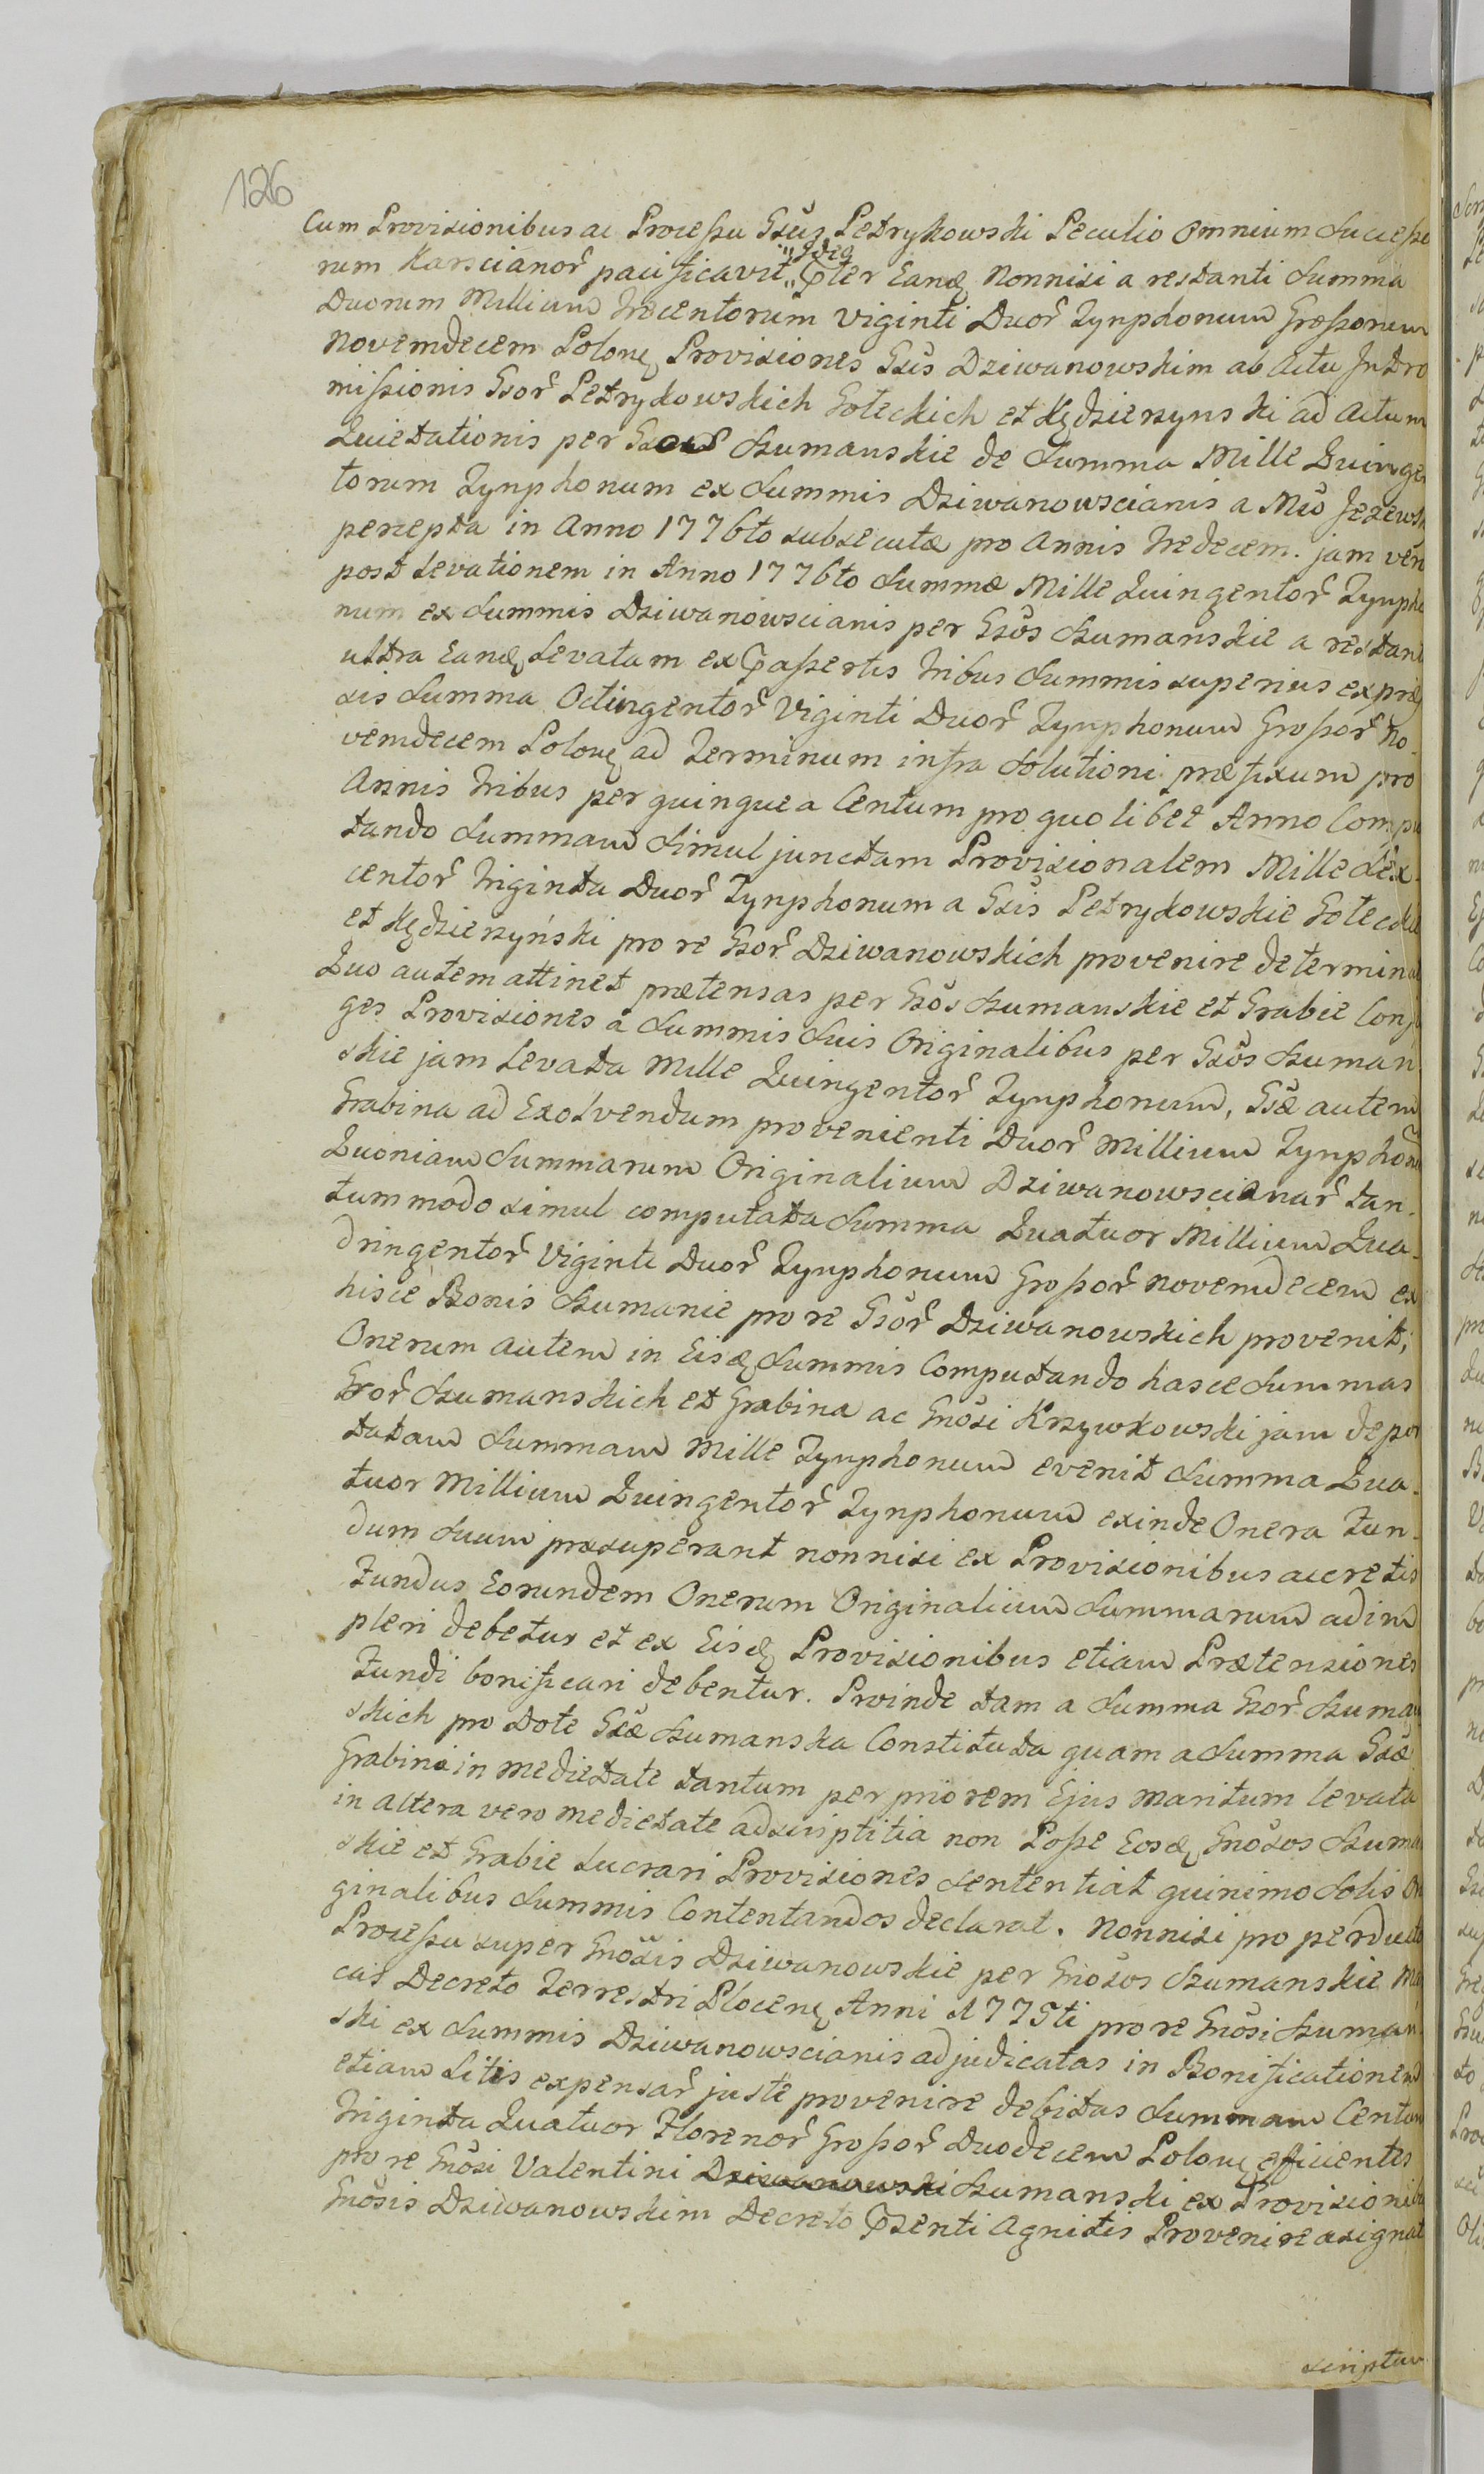 126
Cum Provisionibus ac Processu Gsus Petrykowski Peculio omnium Successo
rum Karscianor̃ pacificavit „Idea
„Pter Eandę Nonnisi a restanti Summa
Duorum Millium Trecentorum viginti Duor̃ Tynphonum Grossorum
Novemdecem Polonę Provisiones Gsis Dziwanowskim ab Actu Intro
missionis Gsor̃ Petrykowskich Goleckich et Kędzierzynski ad Actum
Quietationis per Gsos Szumanskie de Summa Mille Quingen
torum Tynphonum ex Summis Dziwanowscianis a Mũo Jezewsk
percepta in Anno 1776to subsecutæ pro Annis Tredecem. jam vero
post Levationem in Anno 1776to Summæ Mille Quingentor̃ Tynpho
num ex Summis Dziwanowscianis per Gsos Szumanskie a restanti
ultra Eandę Levatam ex Passertis Tribus Summis superius expręs
sis Summa Octingentor̃ Viginti Duor̃ Tynphonum Grossor̃ No-
vemdecem Polonę ad Terminum infra Solutioni præfixum pro
Annis Tribus per quinque a Centum pro quolibet Anno Compu
tando Summam Simul junctam Provisionalem Mille Sex-
centor̃ Triginta Duor̃ Tynphonum a Gsis Petrykowskie Goleckie
et Kędzierzyński pro re Gsor̃ Dziwanowskich provenire determinat
Quo autem attinet prætensas per Gsos Szumanskie et Grabie Conju
ges Provisiones a Summis Suis Originalibus per Gsos Szuman
skie jam Levata Mille Quingentor̃ Tynphonum, Gsæ autem
Grabina ad Exolvendum provenienti Duor̃ Millium Tynphonũ
Quoniam Summarum Originalium Dziwanowscianar̃ tan-
tummodo simul computata Summa Quatuor Millium Qua-
dringentor̃ Viginti Duor̃ Tynphonum Grossor̃ Novemdecem ex
hisce Bonis Szumanie pro re Gsor̃ Dziwanowskich provenit;
Onerum autem in Eisdę Summis Computando hasce Summas
Gsor̃ Szumanskich et Grabina ac Gnosi Krzywkowski jam depor
tatam Summam Mille Tynphonum evenit Summa Qua-
tuor Millium Quingentor̃ Tynphonum exinde Onera Fun-
dum Suum præsuperant nonnisi ex Provisionibus accretis
Fundus Eorundem Onerum Originalium Summarum adim
pleri debetur et ex Eisdę Provisionibus etiam Prætensiones
Fundi bonificari debentur. Proinde tam a Summa Gsor̃ Szuman
skich pro Dote Gsæ Szumanska Constituta quam a Summa Gsæ
Grabina in medietate tantum per priorem Ejus Maritum levata
in altera vero medietate adscriptitia non Posse Eosdę Gnosos Szuma
skie et Grabie lucrari Provisiones sententiat quinimo Solis Ori
ginalibus Summis Contentandos declarat. Nonnisi pro perducto
Processu super Gnosis Dziwanowskie per Gnosos Szumanskie
cas Decreto Terrestri Plocenę Anni 1775ti pro re Gnosi Szuman
ski ex Summis Dziwanowscianis adjudicatas in Bonificationem
etiam Litis expensar̃ juste provenire debitas Summam Centum
Triginta Quatuor Florenor̃ Grossor̃ Duodecem Polonę efficientes
pro re Gnosi Valentini Dziwanowski Szumanski ex Provisionib
Gnosis Dziwanowskim Decreto Psenti Agnitis Provenire asignat
scriptum